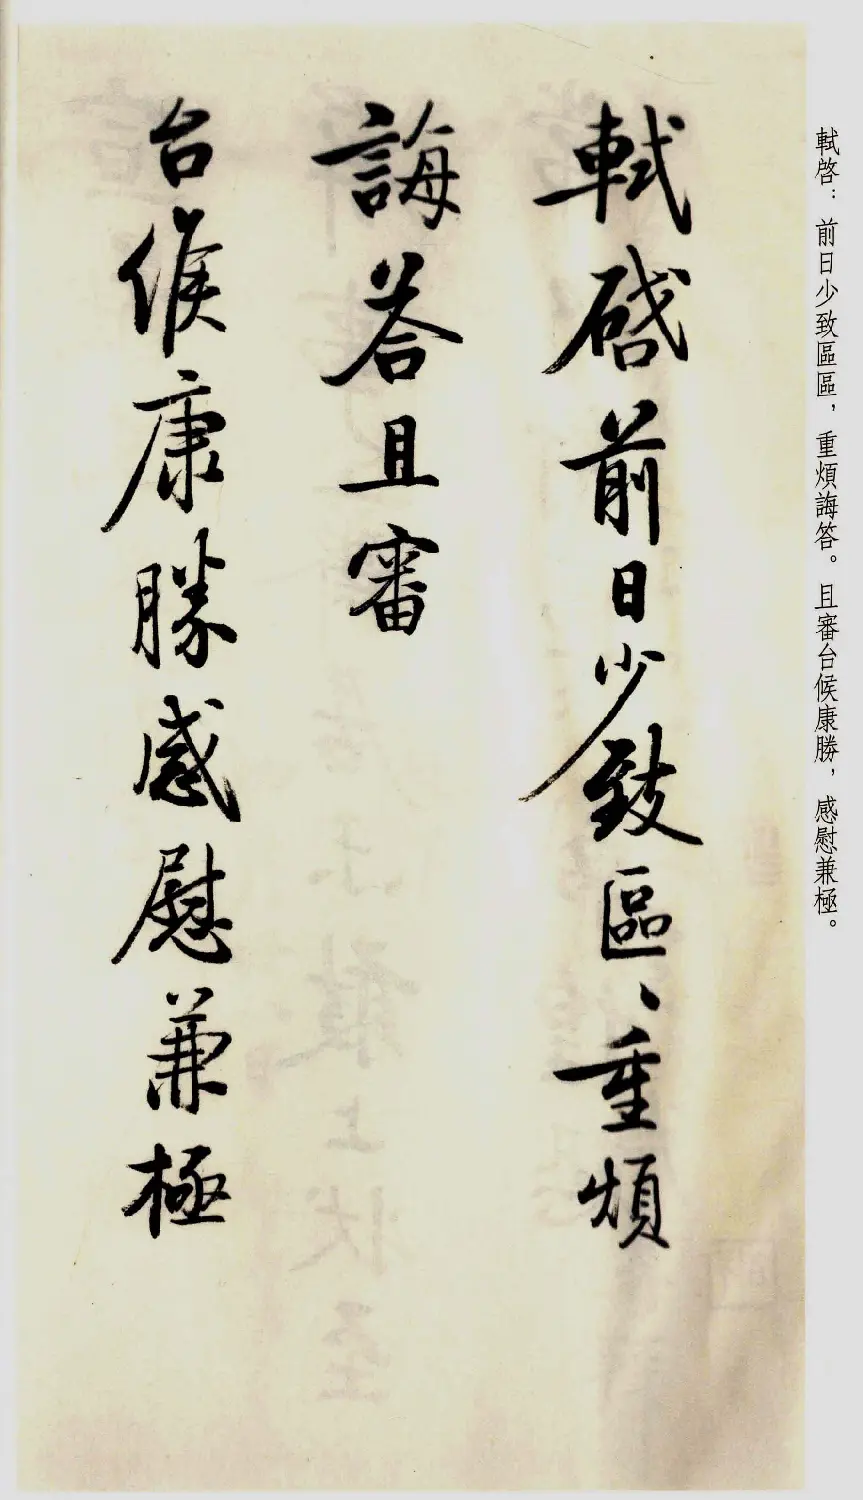 軾啓：前日少致區區，重煩誨答。且審台候康勝，感慰兼極。
軾啓前日少致區〻重煩
誨答且審
台候康勝感慰兼極